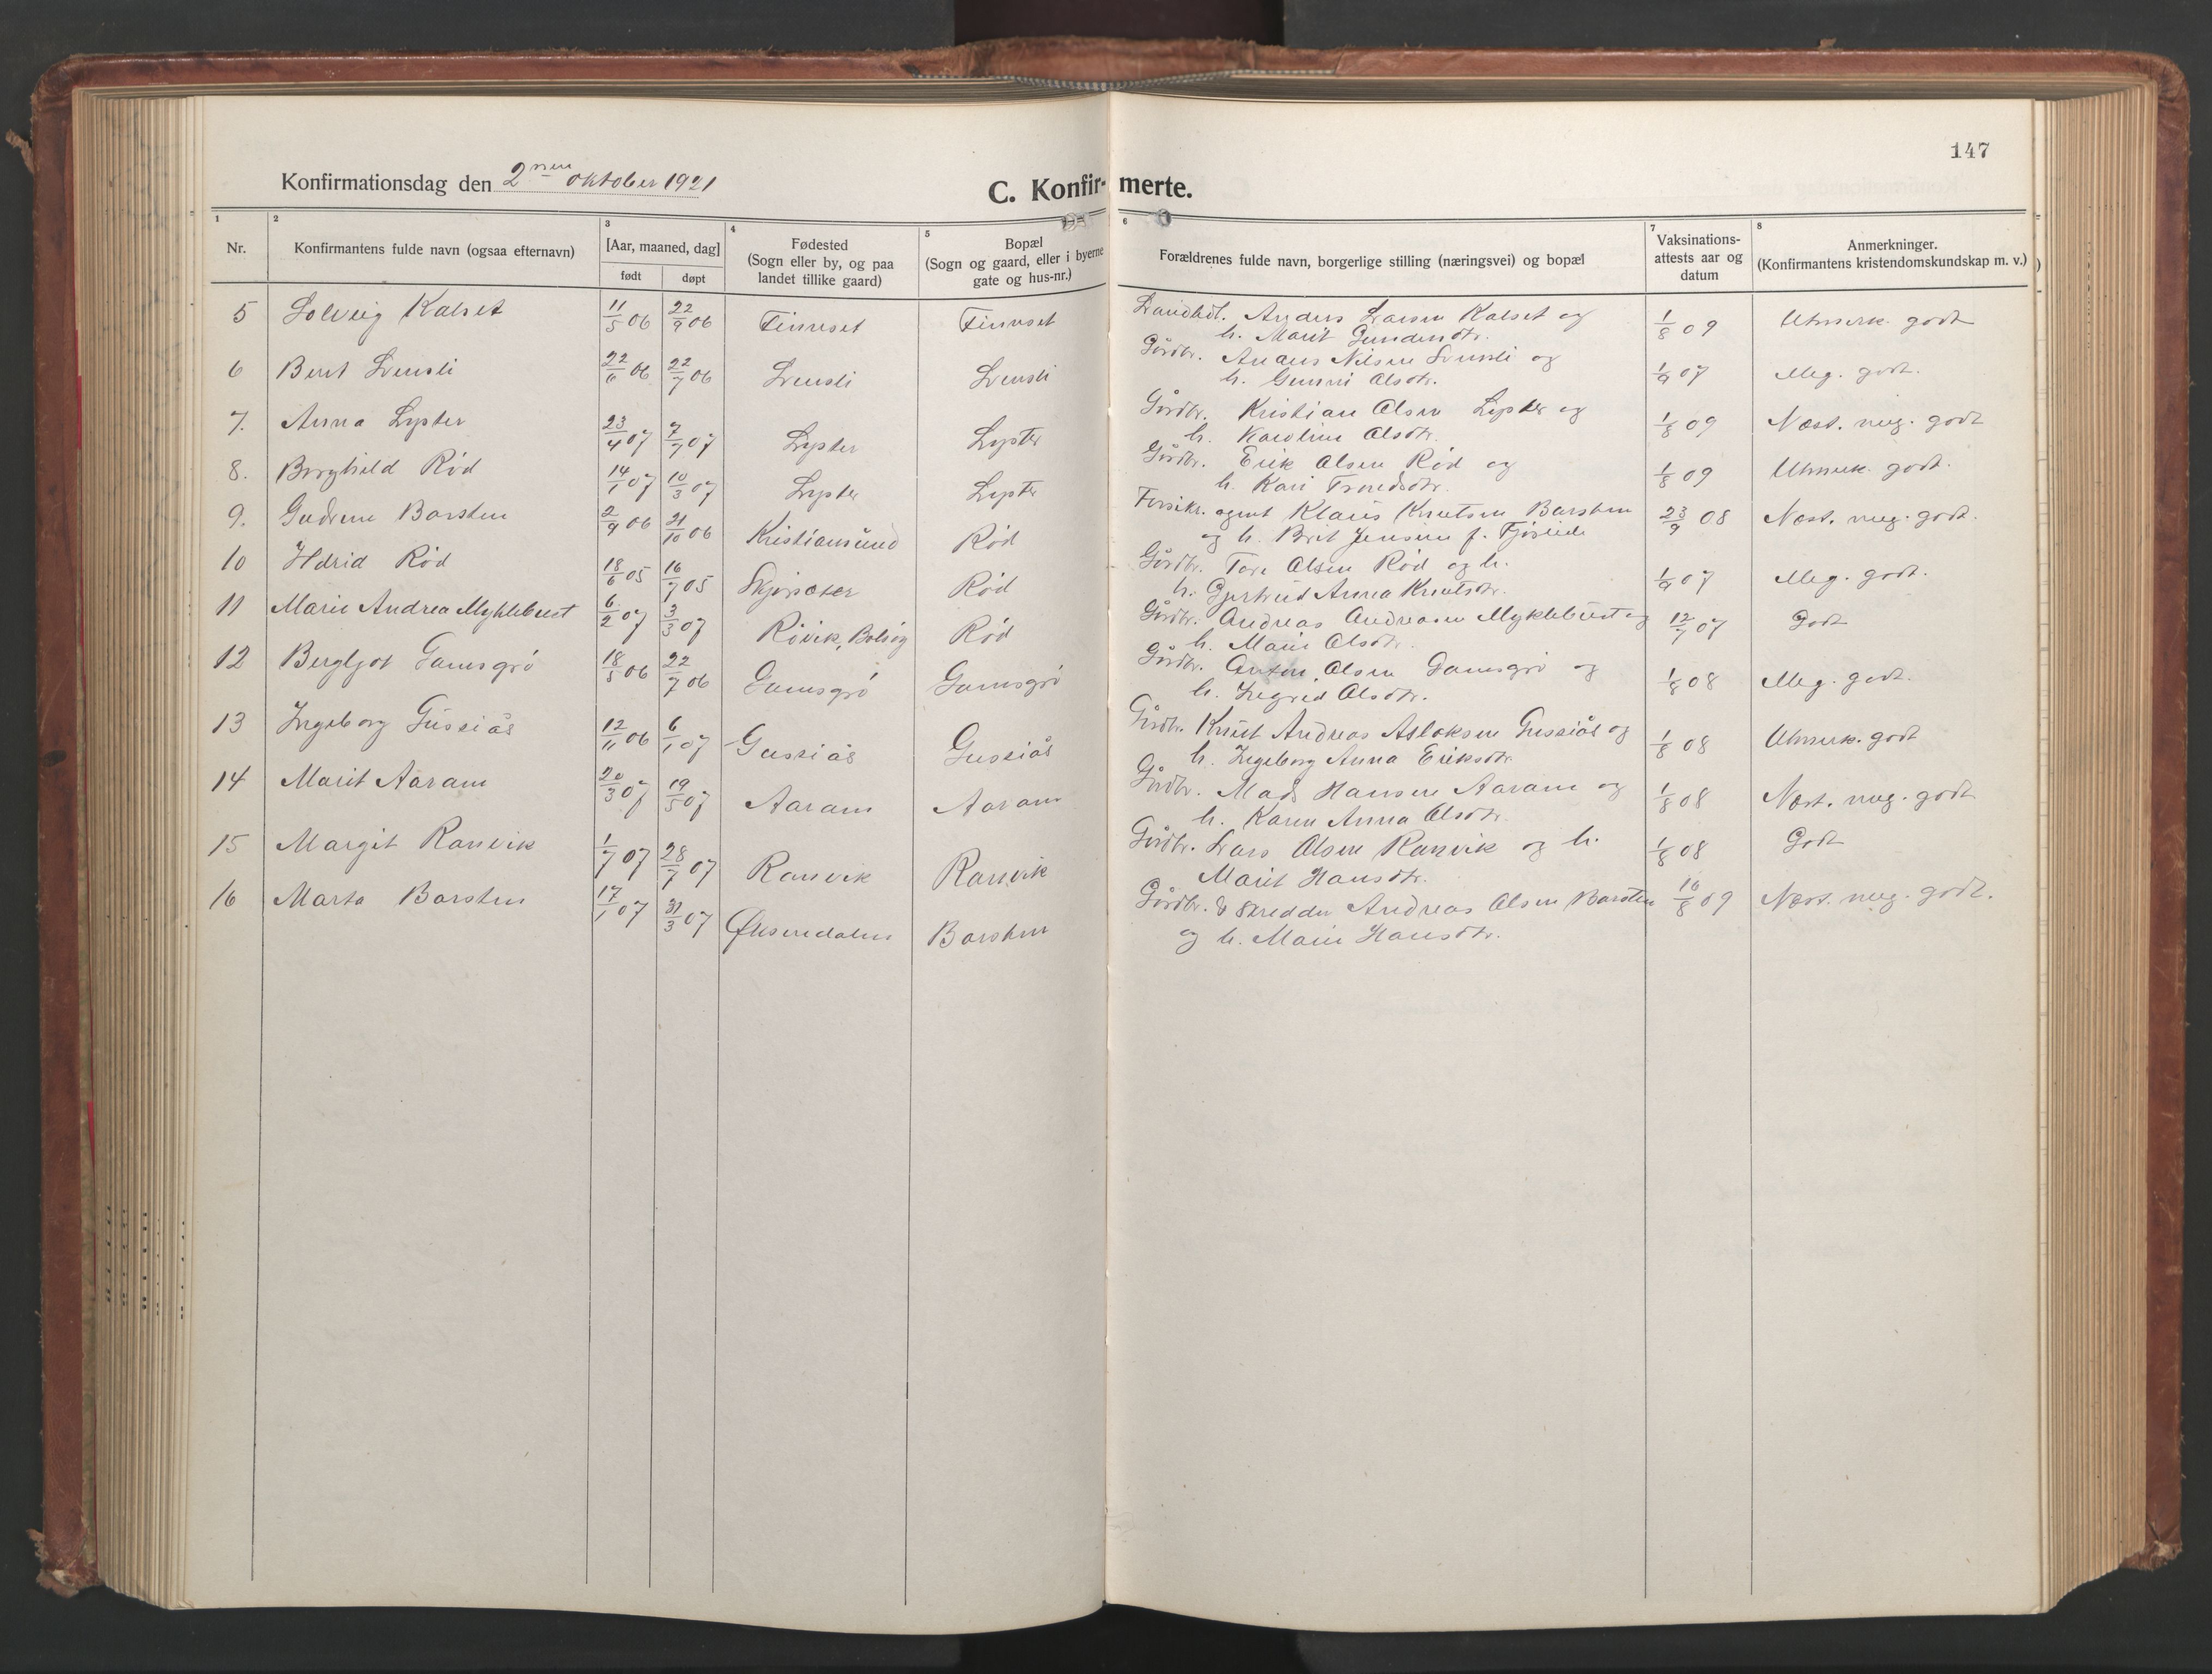 147
Konfirmationsdag den 2nen oktober 1921
C. Konfir- merte.
1 2 3 4 5 6 7 8
Nr.
Konfirmantens fulde navn (ogsaa efternavn)
[Aar, maaned, dag]
født døpt
Fødested
(Sogn eller by, og paa
landet tillike gaard)
Bopæl
(Sogn og gaard, eller i byerne
gate og hus-nr.)
Forældrenes fulde navn, borgerlige stilling (næringsvei) og bopæl
Vaksinations-
attests aar og
datum
Anmerkninger.
(Konfirmantens kristendomskundskap m. v.)
5 Solveig Kalset 11/5 06 22/9 06 Finnset Finnset Landhdl. Anders Larsen Kalset og 1/8 09 Utmerk. godt
h. Marit
6 Berit Svensli 22/6 06 22/7 06 Svensli Svensli Gårdbr. Anders Nilsen Svensli og 1/9 07 Meg. godt.
h. Gunni Olsdtr.
7. Anna Lyster 23/4 07 7/7 07 Lyster Lyster Gårdbr. Kristian Olsen Lyster og 1/8 09 Næst. meg. godt
h. Karoline Olsdtr.
8. Borghild Rød 14/1 07 10/3 07 Lyster Lyster Gårdbr. Erik Olsen Rød og 1/8 09 Utmerk. godt.
h. Kari Trondsdtr.
9. Gudrun Barsten 2/9 06 21/10 06 Kristiansund Rød Forsikr. agent Klaus Knutsen Barsten 23/9 08 Næst. meg. godt.
og h. Brit Jensine f.
10 Idrid Rød 18/6 05 16/7 05 Skjørsæter Rød Gårdbr. Tore Olsen Rød og h. 1/9 07 Meg. godt.
h. Gjertrud Anna Knutsdtr.
11 Marie Andrea Myklebust 6/2 07 3/3 07 Røvik, Bolsøy Rød Gårdbr. Andreas Andreasen Myklebust og 12/7 07 Godt
h. Marie Olsdtr.
12 Bergljot Gamsgrø 18/5 06 22/7 06 Gamsgrø Gamsgrø Gårdbr. Anton Olsen Gamsgrø og 1/8 08 Meg. godt.
h. Ingrid Olsdtr.
13 Ingeborg Gussiås 12/11 06 6/1 07 Gussiås Gussiås Gårdbr. Knut Andreas Aslaksen Gussiås og 1/8 08 Utmerk. godt
h. Ingeborg Anna Eriksdtr.
14 Marit Aaram 20/3 07 19/5 07 Aaram Aaram Gårdbr. Mads Hansen Aaram og 1/8 08 Næst. meg. godt
h. Karen Anna Olsdtr.
15 Margit Ranvik 1/7 07 28/7 07 Ranvik Ranvik Gårdbr. Lars Olsen Ranvik og h. 1/8 08 Godt
Marit Hansdtr.
16 Marta Barsten 17/1 07 31/3 07 Øksendalen Barsten Gårdbr. & skredder Andreas Olsen Barsten 16/8 09 Næst. meg. godt.
og h. Marie Hansdtr.